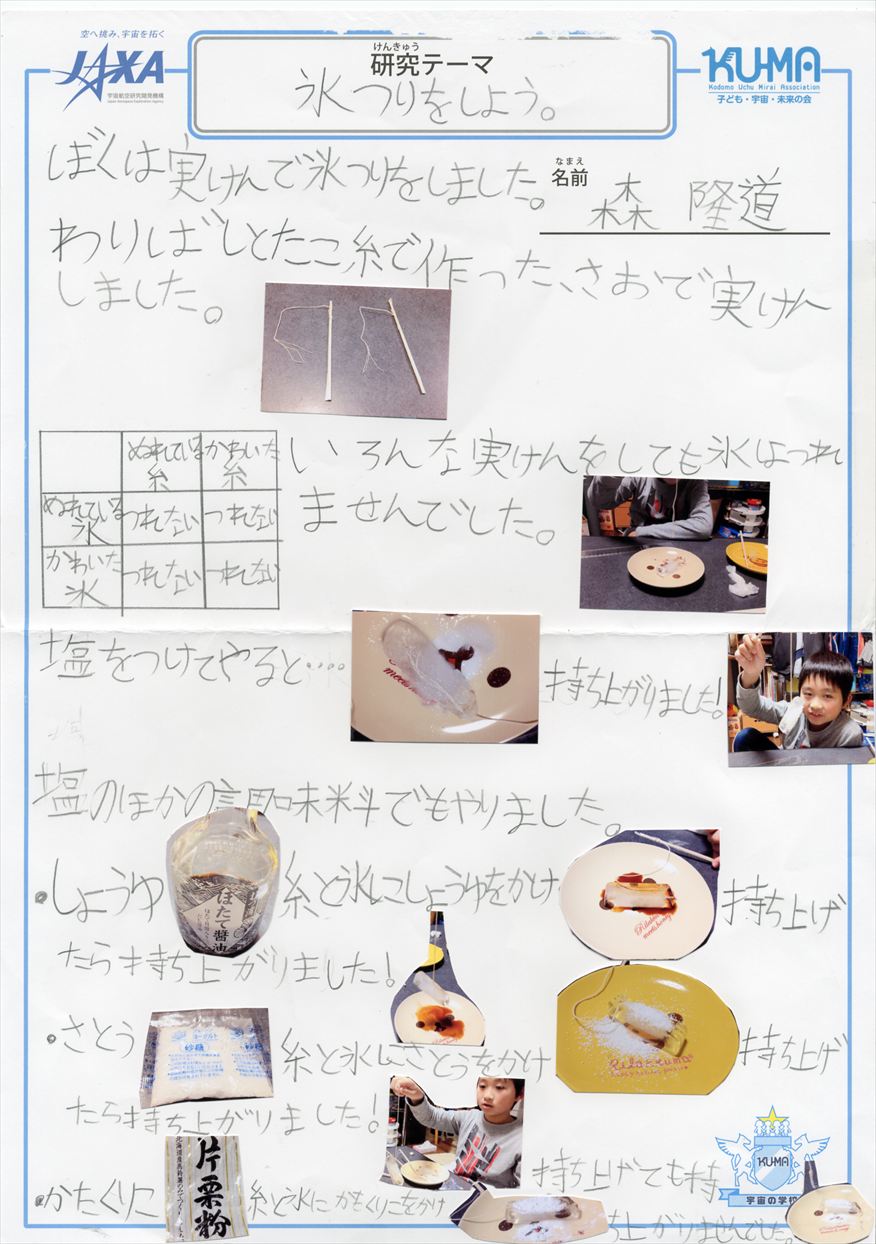 空へ挑み、宇宙を拓く
JAXA
宇宙航空研究開発機構
Japan Aerospace Exploration Agency
けんきゅう
研究テーマ
氷つりをしよう。
KU-MA
Kodomo Uchu Mirai Association
子ども・宇宙・未来の会
ぼくは実けんで氷つりをしました。
なまえ
名前
森 隆道
わりばしとたこ糸で作った、さおで実けん
しました。
ぬれている糸 かわいた糸
ぬれている氷 つれない つれない
かわいた氷 つれない つれない
いろんな実けんをしても氷はつれ
ませんでした。
塩をつけてやると‥‥
持ち上がりました!
塩のほかの調味料でもやりました。
・しょうゆ
ほたて醤油
糸と氷にしょうゆをかけ
Rilakkuma
持ち上げ
たら持ち上がりました!
・さとう
砂糖
糸と氷にさとうをかけ
Rilakkuma
持ち上げ
たら持ち上がりました!
・かたくりこ
片栗粉
糸と氷にかたくりこをかけ
持ち上げても持
ち上がりませんでした。
KUMA
宇宙の学校